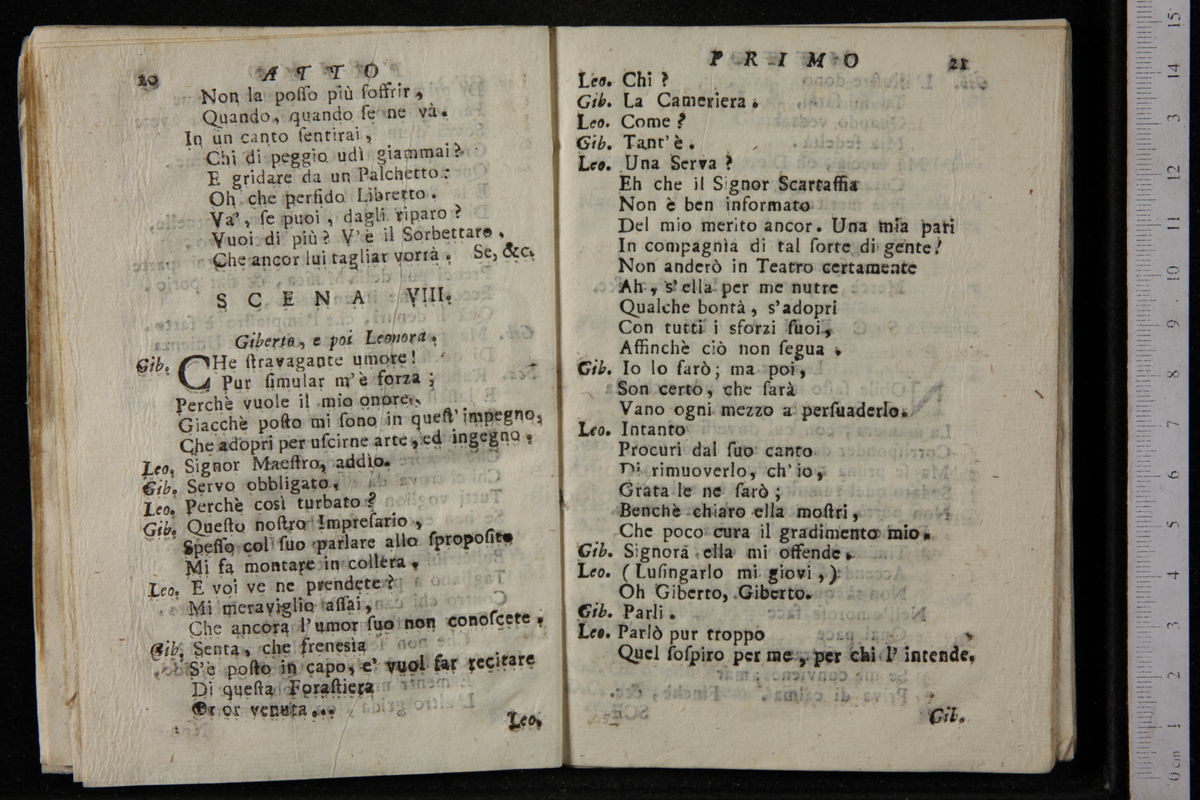 20 ATTO
Non la poſſo più ſoffrir,
Quando, quando ſe ne và.
In un canto ſentirai,
Chi di peggio udì giammai?
E gridare da un Palchetto:
Oh che perfido Libretto.
Va', ſe puoi, dagli riparo?
Vuoi di più? V'è il Sorbettaro,
Che ancor lui tagliar vorrà. Se, &c.
SCENA VIII.
Giberto, e poi Leonora.
Gib. CHe ſtravagante umore!
Pur ſimular m'è forza;
Perchè vuole il mio onore,
Giacchè poſto mi ſono in queſt'impegno,
Che adopri per uſcirne arte, ed ingegno.
Leo. Signor Maeſtro, addìo.
Gib. Servo obbligato.
Leo. Perchè così turbato?
Gib. Queſto noſtro Impreſario,
Speſſo col ſuo parlare allo ſpropoſito
Mi fa montare in collera.
Leo. E voi ve ne prendete?
Mi meraviglio aſſai,
Che ancora l'umor ſuo non conoſcete.
Gib. Senta, che freneſìa
S'è poſto in capo, e' vuol far recitare
Di queſta Foraſtiera
Or or venuta...
Leo.
PRIMO 21
Leo. Chi?
Gib. La Cameriera.
Leo. Come?
Gib. Tant'è.
Leo. Una Serva?
Eh che il Signor Scartaffia
Non è ben informato
Del mio merito ancor. Una mia pari
In compagnìa di tal ſorte di gente!
Non anderò in Teatro certamente
Ah, s'ella per me nutre
Qualche bontà, s'adopri
Con tutti i sforzi ſuoi,
Affinchè ciò non ſegua.
Gib. Io lo farò; ma poi,
Son certo, che ſarà
Vano ogni mezzo a perſuaderlo.
Leo. Intanto
Procuri dal ſuo canto
Di rimuoverlo, ch'io,
Grata le ne ſarò;
Benchè chiaro ella moſtri,
Che poco cura il gradimento mio.
Gib. Signora ella mi offende.
Leo. (Luſingarlo mi giovi,)
Oh Giberto, Giberto.
Gib. Parli.
Leo. Parlò pur troppo
Quel ſoſpiro per me, per chi l'intende.
Gib.